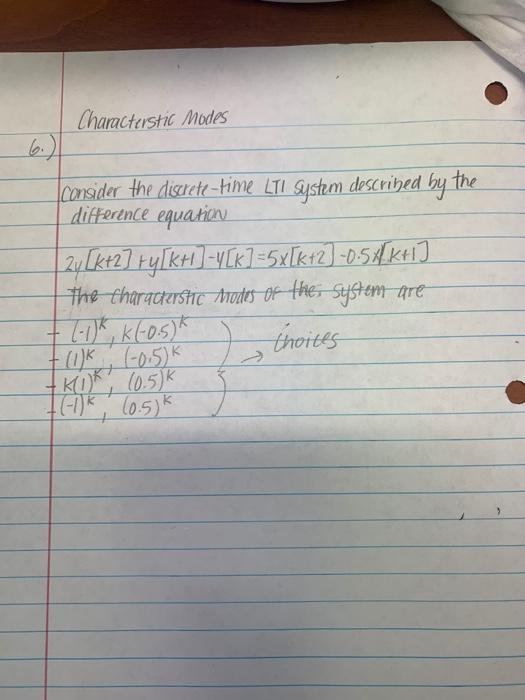 Characterstic Modes
6.)
Consider the discrete-time LTI system described by the
difference equation
2y[k+2]+y[k+1]-y[k]=5x[k+2]-0.5x[k+1]
The characterstic modes of the system are
- (-1)^k, k(-0.5)^k
- (1)^k, (-0.5)^k
- k(1)^k, (0.5)^k
- (-1)^k, (0.5)^k
→ Choices